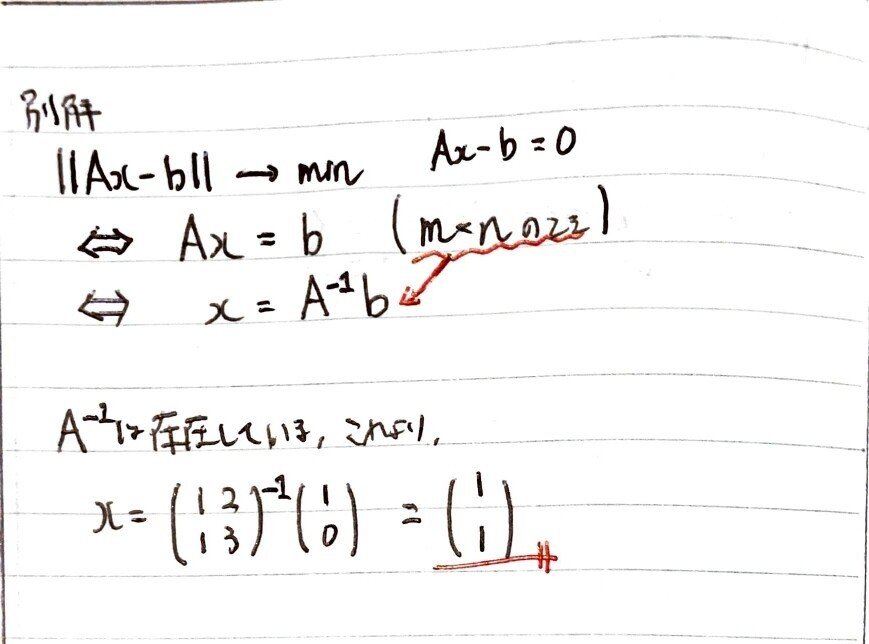 別解
||Ax-b|| → min  Ax-b=0
⇔ Ax = b (m×nのとき)
⇔ x = A⁻¹b
A⁻¹は存在している, これより,
x = (1 2; 1 3)⁻¹ (1; 0) = (1; 1)